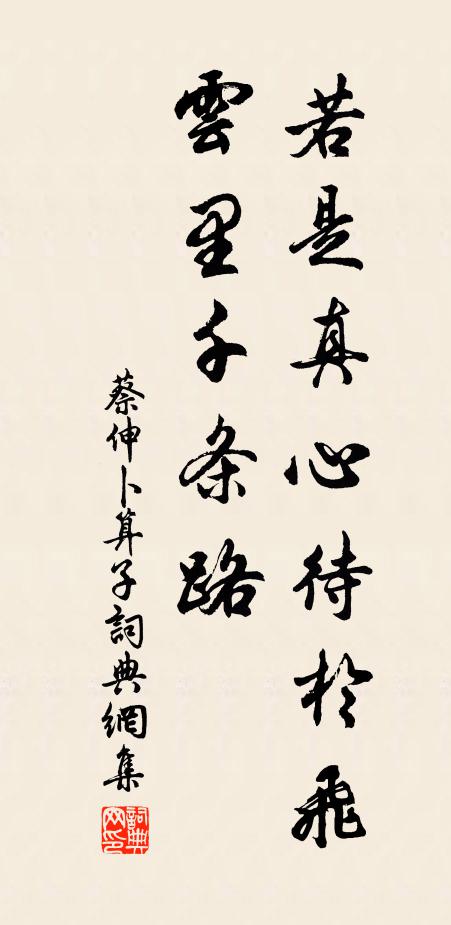 若是真心待於飛
雲里千条路
蔡伸卜算子詞典網集
詞典
网印